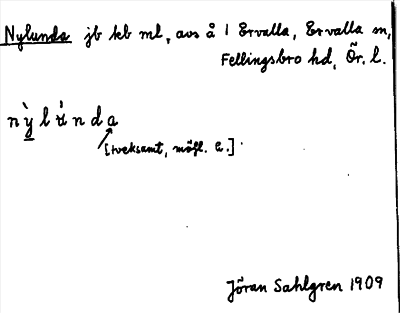 Nylunda jb kb ml, avs å 1 Ervalla, Ervalla sn,
Fellingsbro hd, Ör. l.
nỳlu̇nda
[tveksamt, möjl. a.]
Jöran Sahlgren 1909